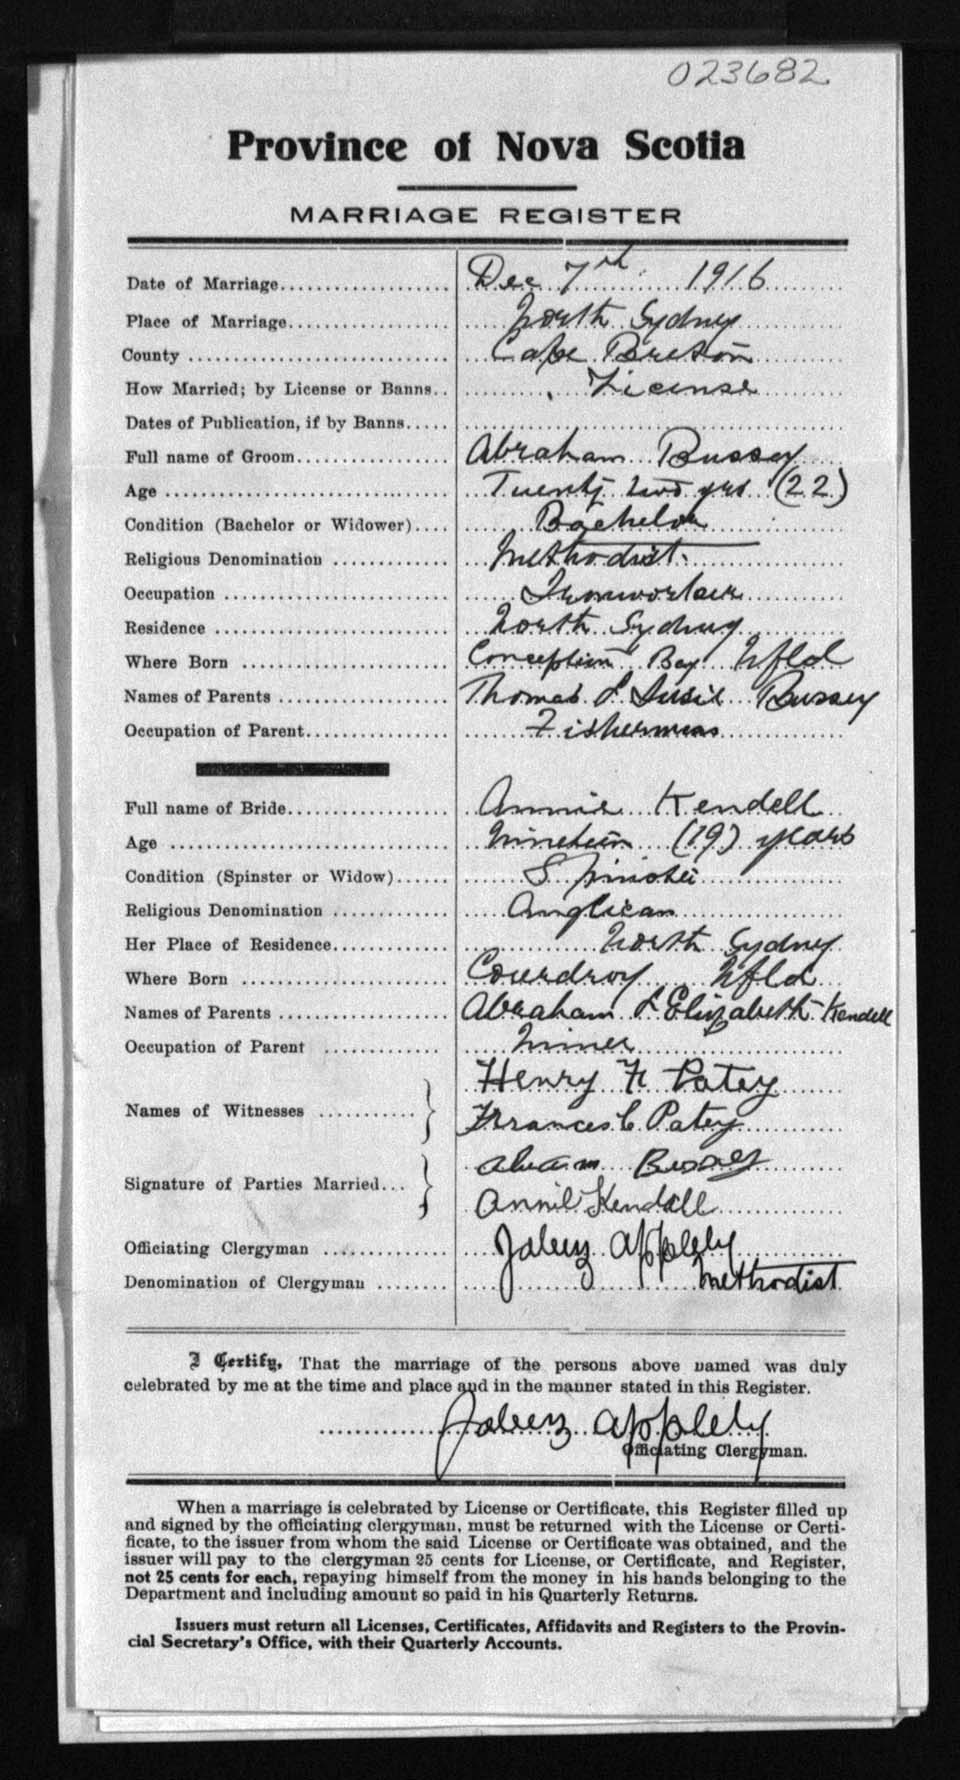 023682
Province of Nova Scotia
MARRIAGE REGISTER
Date of Marriage................... Dec 7th 1916
Place of Marriage.................. North Sydney
County ............................ Cape Breton
How Married; by License or Banns.. License
Dates of Publication, if by Banns.....
Full name of Groom................. Abraham Bussey
Age ............................... Twenty two yrs (22)
Condition (Bachelor or Widower).... Bachelor
Religious Denomination ............. Methodist
Occupation ......................... Ironworker
Residence .......................... North Sydney
Where Born ......................... Conception Bay Nfld
Names of Parents ................... Thomas & Susie Bussey
Occupation of Parent................ Fisherman
Full name of Bride.................. Annie Kendell
Age ................................ Nineteen (19) years
Condition (Spinster or Widow)...... Spinster
Religious Denomination ............. Anglican
Her Place of Residence.............. North Sydney
Where Born ......................... Courdroy Nfld
Names of Parents ................... Abraham & Elizabeth Kendell
Occupation of Parent ............... Miner
Names of Witnesses ........... Henry F. Patey
Frances C Patey
Signature of Parties Married... Bussey
Annie Kendell
Officiating Clergyman .............. Jabez Appleby
Denomination of Clergyman ........ Methodist
I Certify, That the marriage of the persons above named was duly
celebrated by me at the time and place and in the manner stated in this Register.
Jabez Appleby
Officiating Clergyman.
When a marriage is celebrated by License or Certificate, this Register filled up
and signed by the officiating clergyman, must be returned with the License or Certi-
ficate, to the issuer from whom the said License or Certificate was obtained, and the
issuer will pay to the clergyman 25 cents for License, or Certificate, and Register,
not 25 cents for each, repaying himself from the money in his hands belonging to the
Department and including amount so paid in his Quarterly Returns.
Issuers must return all Licenses, Certificates, Affidavits and Registers to the Provin-
cial Secretary's Office, with their Quarterly Accounts.